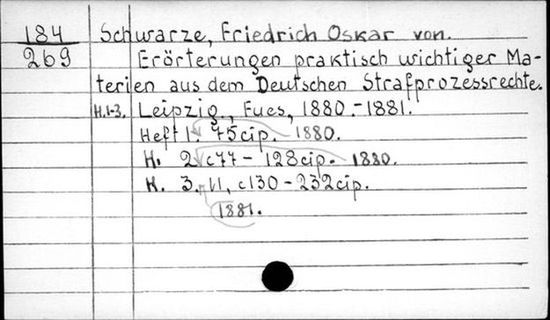 184 Schwarze, Friedrich Oskar von.
269 Erörterungen praktisch wichtiger Ma-
terien aus dem Deutschen Strafprozessrechte.
H.1-3. Leipzig., Fues, 1880.-1881.
Heft 1. 75 cip. 1880.
H. 2. c 77 - 128 cip. 1880.
H. 3. VI, c 130 - 232 cip.
1881.